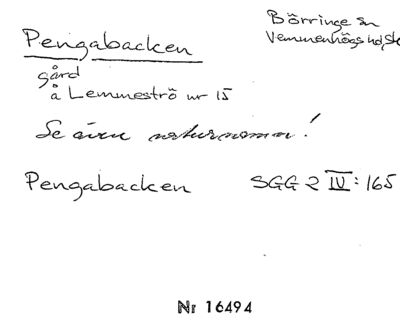 Pengabacken
Börringe sn
Vemmenhögs hd, Sk
gård
å Lemmeströ nr 15
Se även naturnamn!
Pengabacken SGG 2 IV: 165
Nr 16494